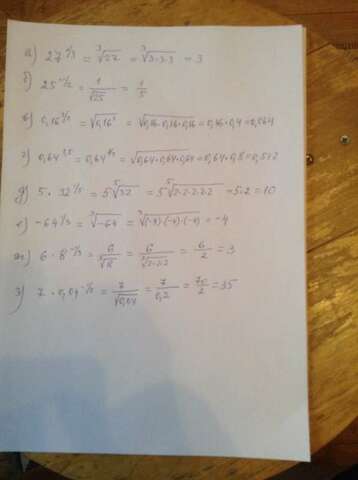 а) 27^1/3 = ³√27 = ³√3·3·3 = 3
б) 25^-1/2 = 1/√25 = 1/5
в) 0,16^3/2 = √0,16³ = √0,16·0,16·0,16 = 0,16·0,4 = 0,064
г) 0,64^1,5 = 0,64^3/2 = √0,64·0,64·0,64 = 0,64·0,8 = 0,512
д) 5·32^1/5 = 5⁵√32 = 5⁵√2·2·2·2·2 = 5·2 = 10
е) -64^1/3 = ³√-64 = ³√(-4)·(-4)·(-4) = -4
ж) 6·8^-1/3 = 6/³√8 = 6/³√2·2·2 = 6/2 = 3
з) 7·0,04^-1/2 = 7/√0,04 = 7/0,2 = 70/2 = 35